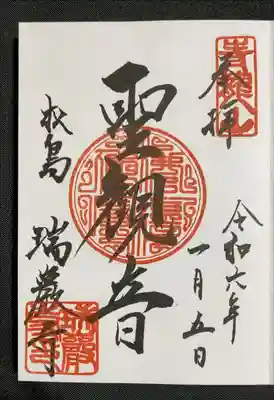 奉拝
令和六年
一月五日
聖観音
松島
瑞巌寺